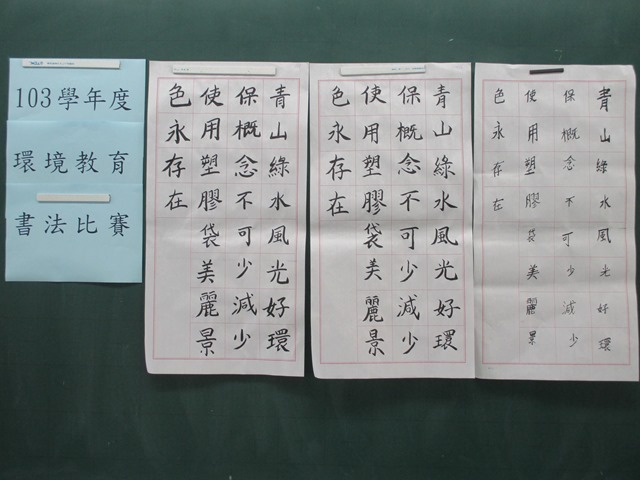 103學年度
環境教育
書法比賽
青山綠水風光好環
保概念不可少減少
使用塑膠袋美麗景
色永存在
青山綠水風光好環
保概念不可少減少
使用塑膠袋美麗景
色永存在
青山綠水風光好環
保概念不可少減少
使用塑膠袋美麗景
色永存在